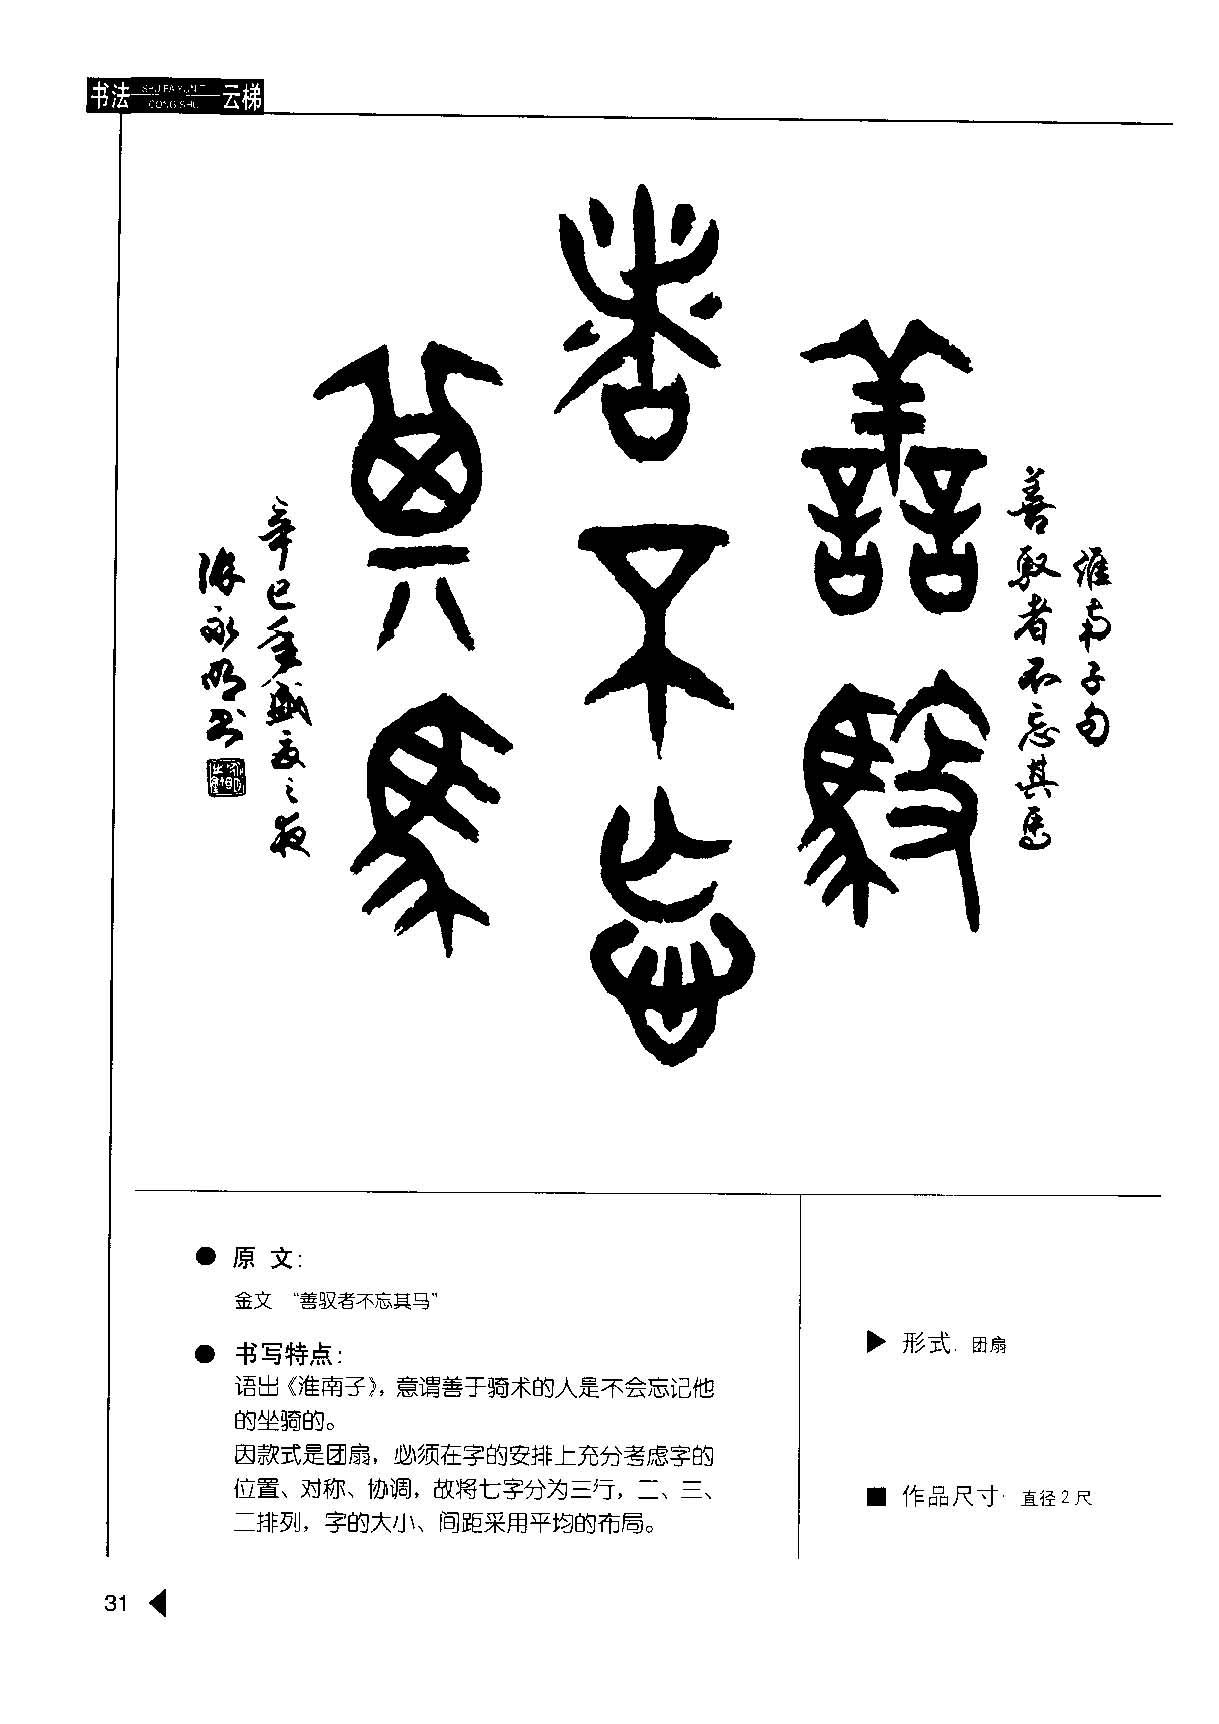 书法 SHU FA YUN TI 云梯
CONG SHU
善驭
者不忘
其马
淮南子句
善驭者不忘其马
辛巳年盛夏之夜
永明书
● 原 文：
金文 “善驭者不忘其马”
● 书写特点：
语出《淮南子》，意谓善于骑术的人是不会忘记他
的坐骑的。
因款式是团扇，必须在字的安排上充分考虑字的
位置、对称、协调，故将七字分为三行，二、三、
二排列，字的大小、间距采用平均的布局。
▶ 形式. 团扇
■ 作品尺寸· 直径2尺
31 ◀